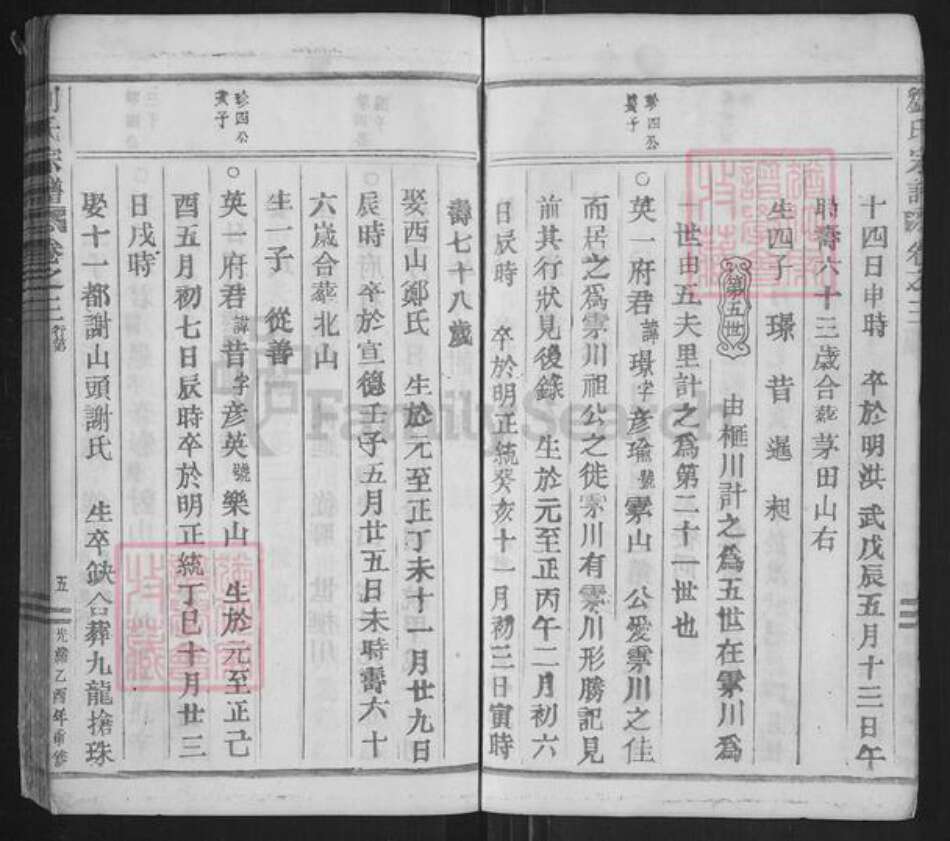 劉氏宗譜 卷之三
十四日申時 卒於明洪武戊辰五月十三日午
時壽六十三歲合葬茅田山右
生四子 璟 昔 暹 昶
第五世 由榧川計之為五世在霏川為
一世由五夫里計之為第二十一世也
珍四公
長子
○英一府君諱璟字彥瑜號霏山 公愛霏川之佳
而居之為霏川祖公之徙霏川有霏川形勝記見
前其行狀見後錄 生於元至正丙午二月初六
日辰時 卒於明正統癸亥十一月初三日寅時
壽七十八歲
娶西山鄭氏 生於元至正丁未十一月廿九日
辰時卒於宣德壬子五月廿五日未時壽六十
六歲合葬北山
生一子 從善
珍四公
次子
○英一府君諱昔字彥英號樂山 生於元至正己
酉五月初七日辰時卒於明正統丁巳十月廿三
日戌時
娶十一都謝山頭謝氏 生卒缺合葬九龍搶珠
劉氏宗譜 卷之三 行第
五
光緒乙酉年重修
FamilySearch